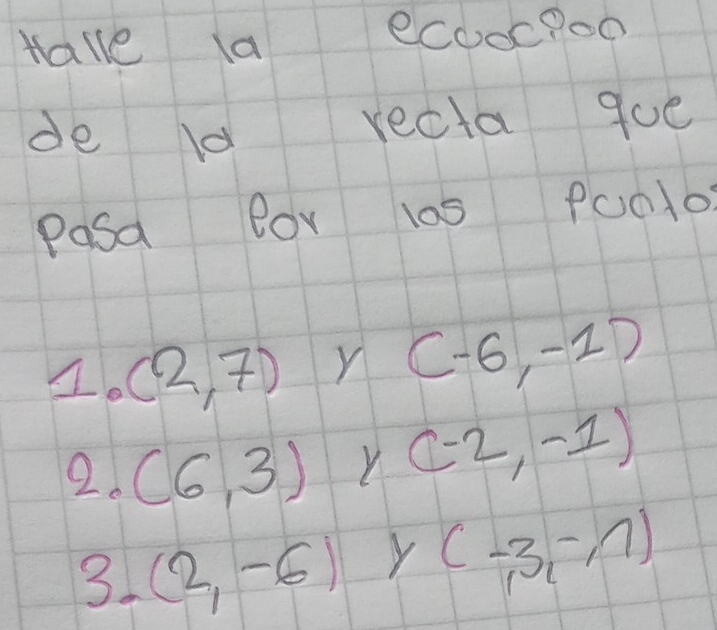 Halle la ecuacion
de la recta que
pasa por los puntos
1.(2,7) y (-6,-1)
2.(6,3) y (-2,-1)
3.(2,-6) y (-3,-,1)